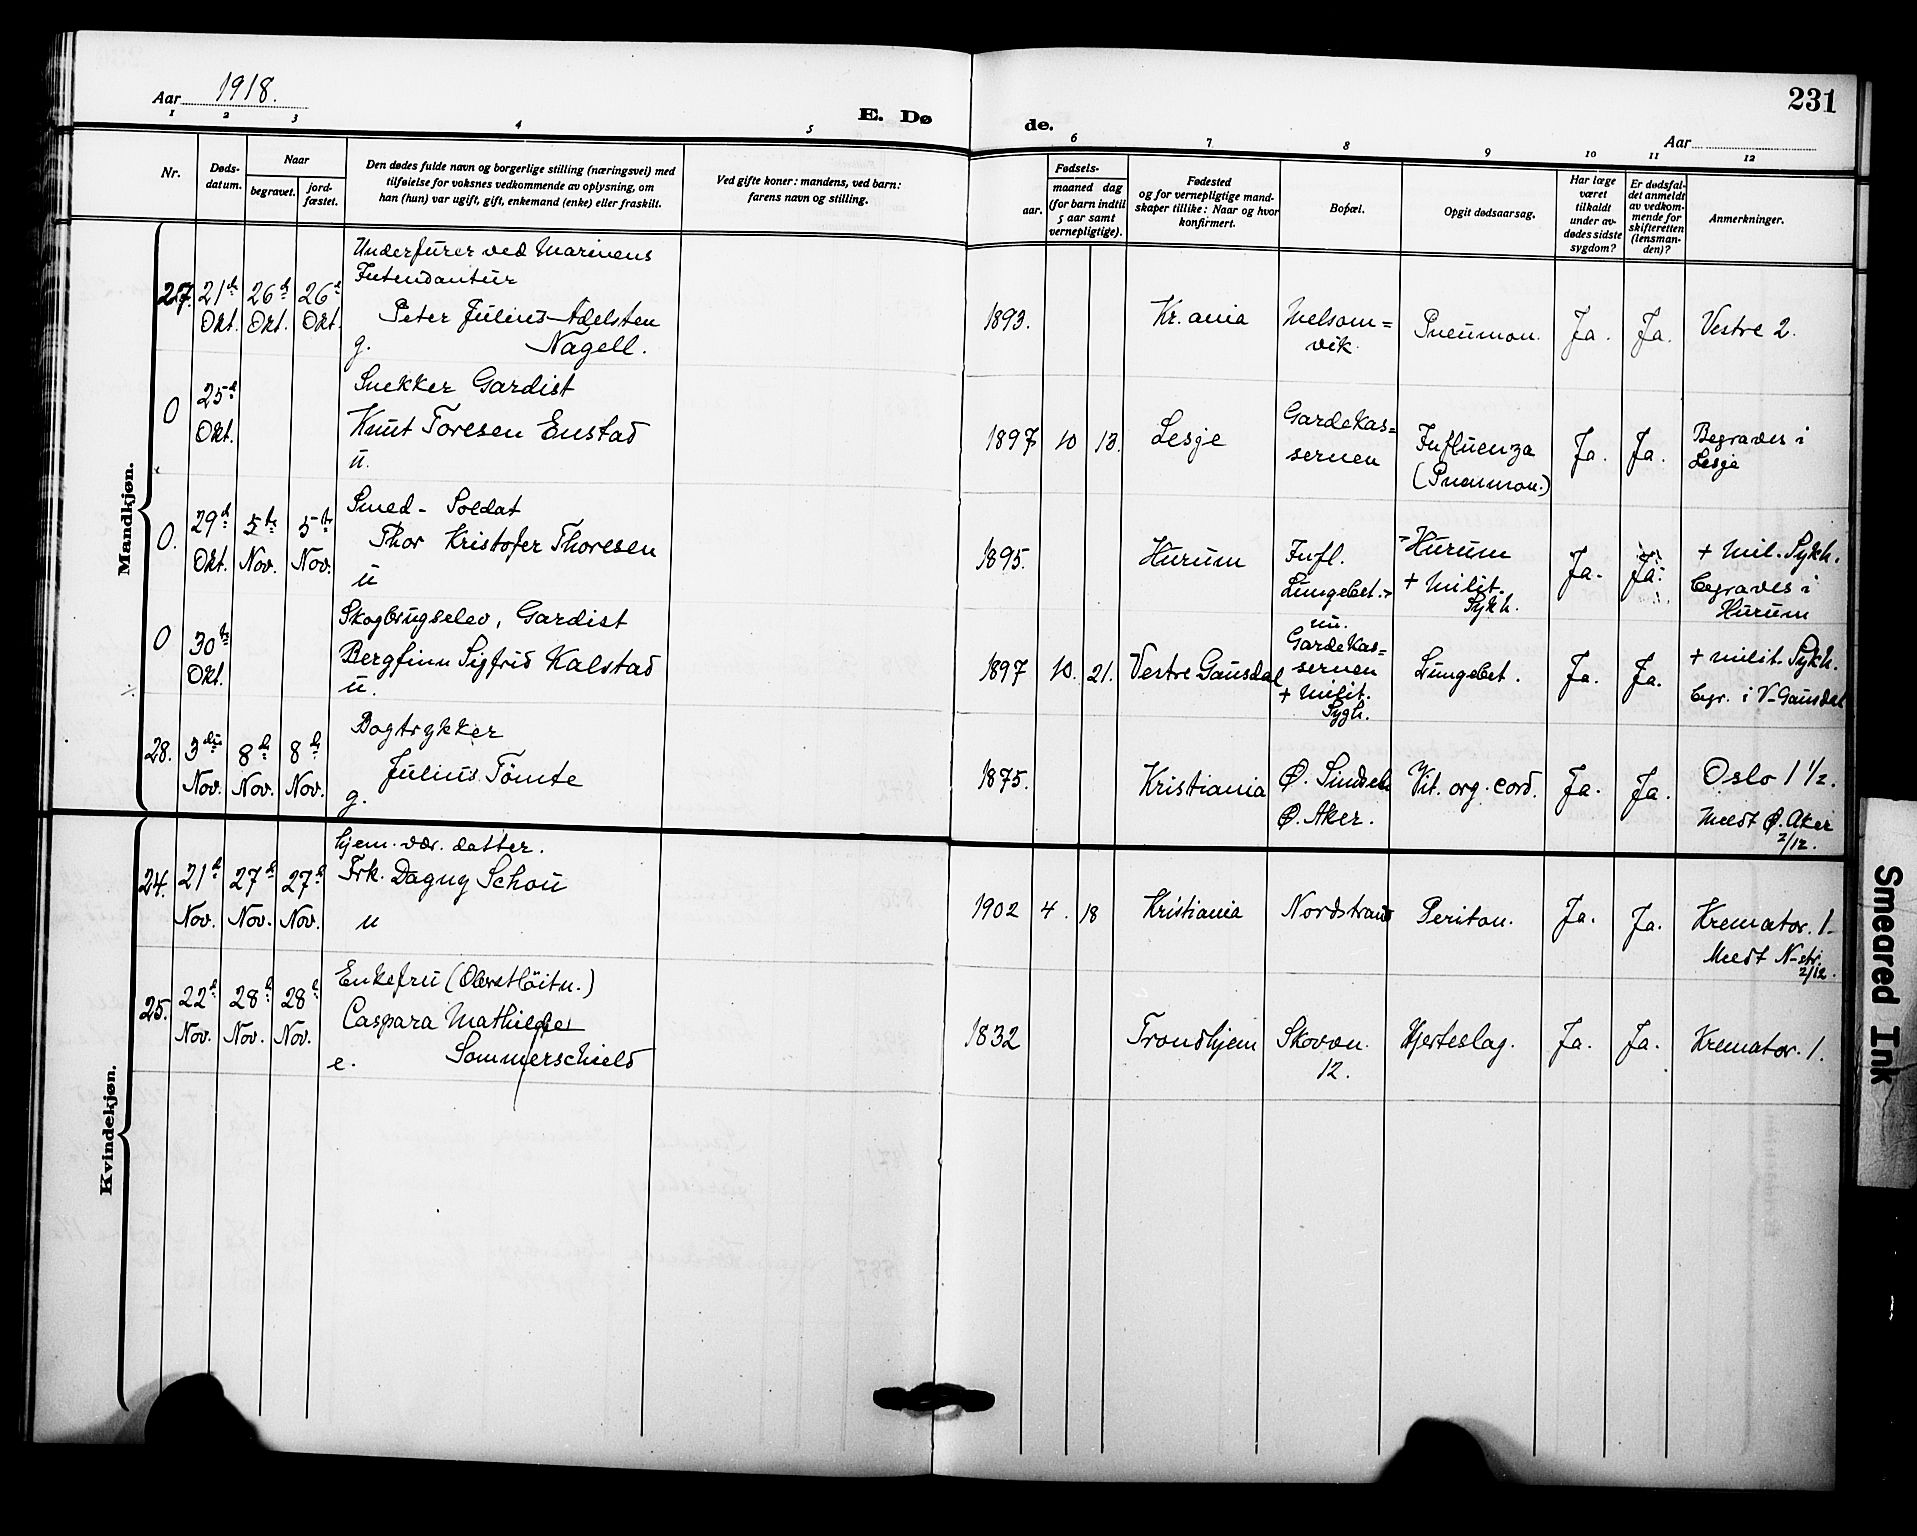 Aar 1918.
E. Dø
de.
Aar
231
1 2 3 4 5 6 7 8 9 10 11 12
Nr.
Døds-
datum.
Naar
begravet.
jord-
fæstet.
Den dødes fulde navn og borgerlige stilling (næringsvei) med
tilføielse for voksnes vedkommende av oplysning, om
han (hun) var ugift, gift, enkemand (enke) eller fraskilt.
Ved gifte koner: mandens, ved barn:
farens navn og stilling.
Fødsels-
aar.
maaned dag
(for barn indtil
5 aar samt
vernepligtige).
Fødested
og for vernepligtige mand-
skaper tillike: Naar og hvor
konfirmert.
Bopæl.
Opgit dødsaarsag.
Har læge
været
tilkaldt
under av-
dødes sidste
sygdom?
Er dødsfal-
det anmeldt
av vedkom-
mende for
skifteretten
(lensman-
den)?
Anmerkninger.
Mandkjøn.
27.
21de
Okt.
26de
Okt.
26de
Okt.
Underfurer ved Marinens
Intendantur
Peter Julius Adelsten
g. Nagell.
1893.
Kr.ania
Melsom=
vik
Pneumon.
Ja.
Ja.
Vestre 2.
0
25de
Okt.
Snekker Gardist
Knut Toresen Enstad
u.
1897
10
13.
Lesje
Gardekas=
sernen
Influenza
(Pneumon.)
Ja.
Ja.
Begraves i
Lesje
0.
29de
Okt.
5te
Nov.
5te
Nov.
Smed - Soldat
Thor Kristofer Thoresen
u
1895.
Hurum
Infl.
Lungebet.
Hurum
+ Milit.
Sykh.
Ja.
Ja.
+ Mil. Sykh.
Begraves i
Hurum
0
30te
Okt.
Skogbrugselev, Gardist
Bergfinn Sigfrid Kalstad
u.
1897
10.
21.
Vestre Gausdal
nu.
Gardekas=
sernen
+ Milit.
Sygh.
Lungebet.
Ja.
Ja.
+ milit. Sykh.
Begr. i V-Gausdal
28.
3die
Nov.
8de
Nov.
8de
Nov.
Bogtrykker
Julius Tömte
g.
1875.
Kristiania
Ø. Sindseb
Ø. Aker.
Vit. org. cord.
Ja.
Ja.
Oslo 1 1/2.
Meldt Ø. Aker
2/12.
Kvindekjøn.
24.
21de
Nov.
27de
Nov.
27de
Nov.
hjem. vær. datter.
Frk. Dagny Schou
u
1902
4.
18
Kristiania
Nordstrand
Periton.
Ja.
Ja.
Kremator. 1
Meldt N-str.
2/12.
25.
22de
Nov.
28de
Nov.
28de
Nov.
Enkefru (Oberstlöitn.)
Caspara Mathilde
e. Sommerschield
1832
Trondhjem
Skovvn.
12.
Hjerteslag.
Ja.
Ja.
Kremator. 1.
Smeared Ink